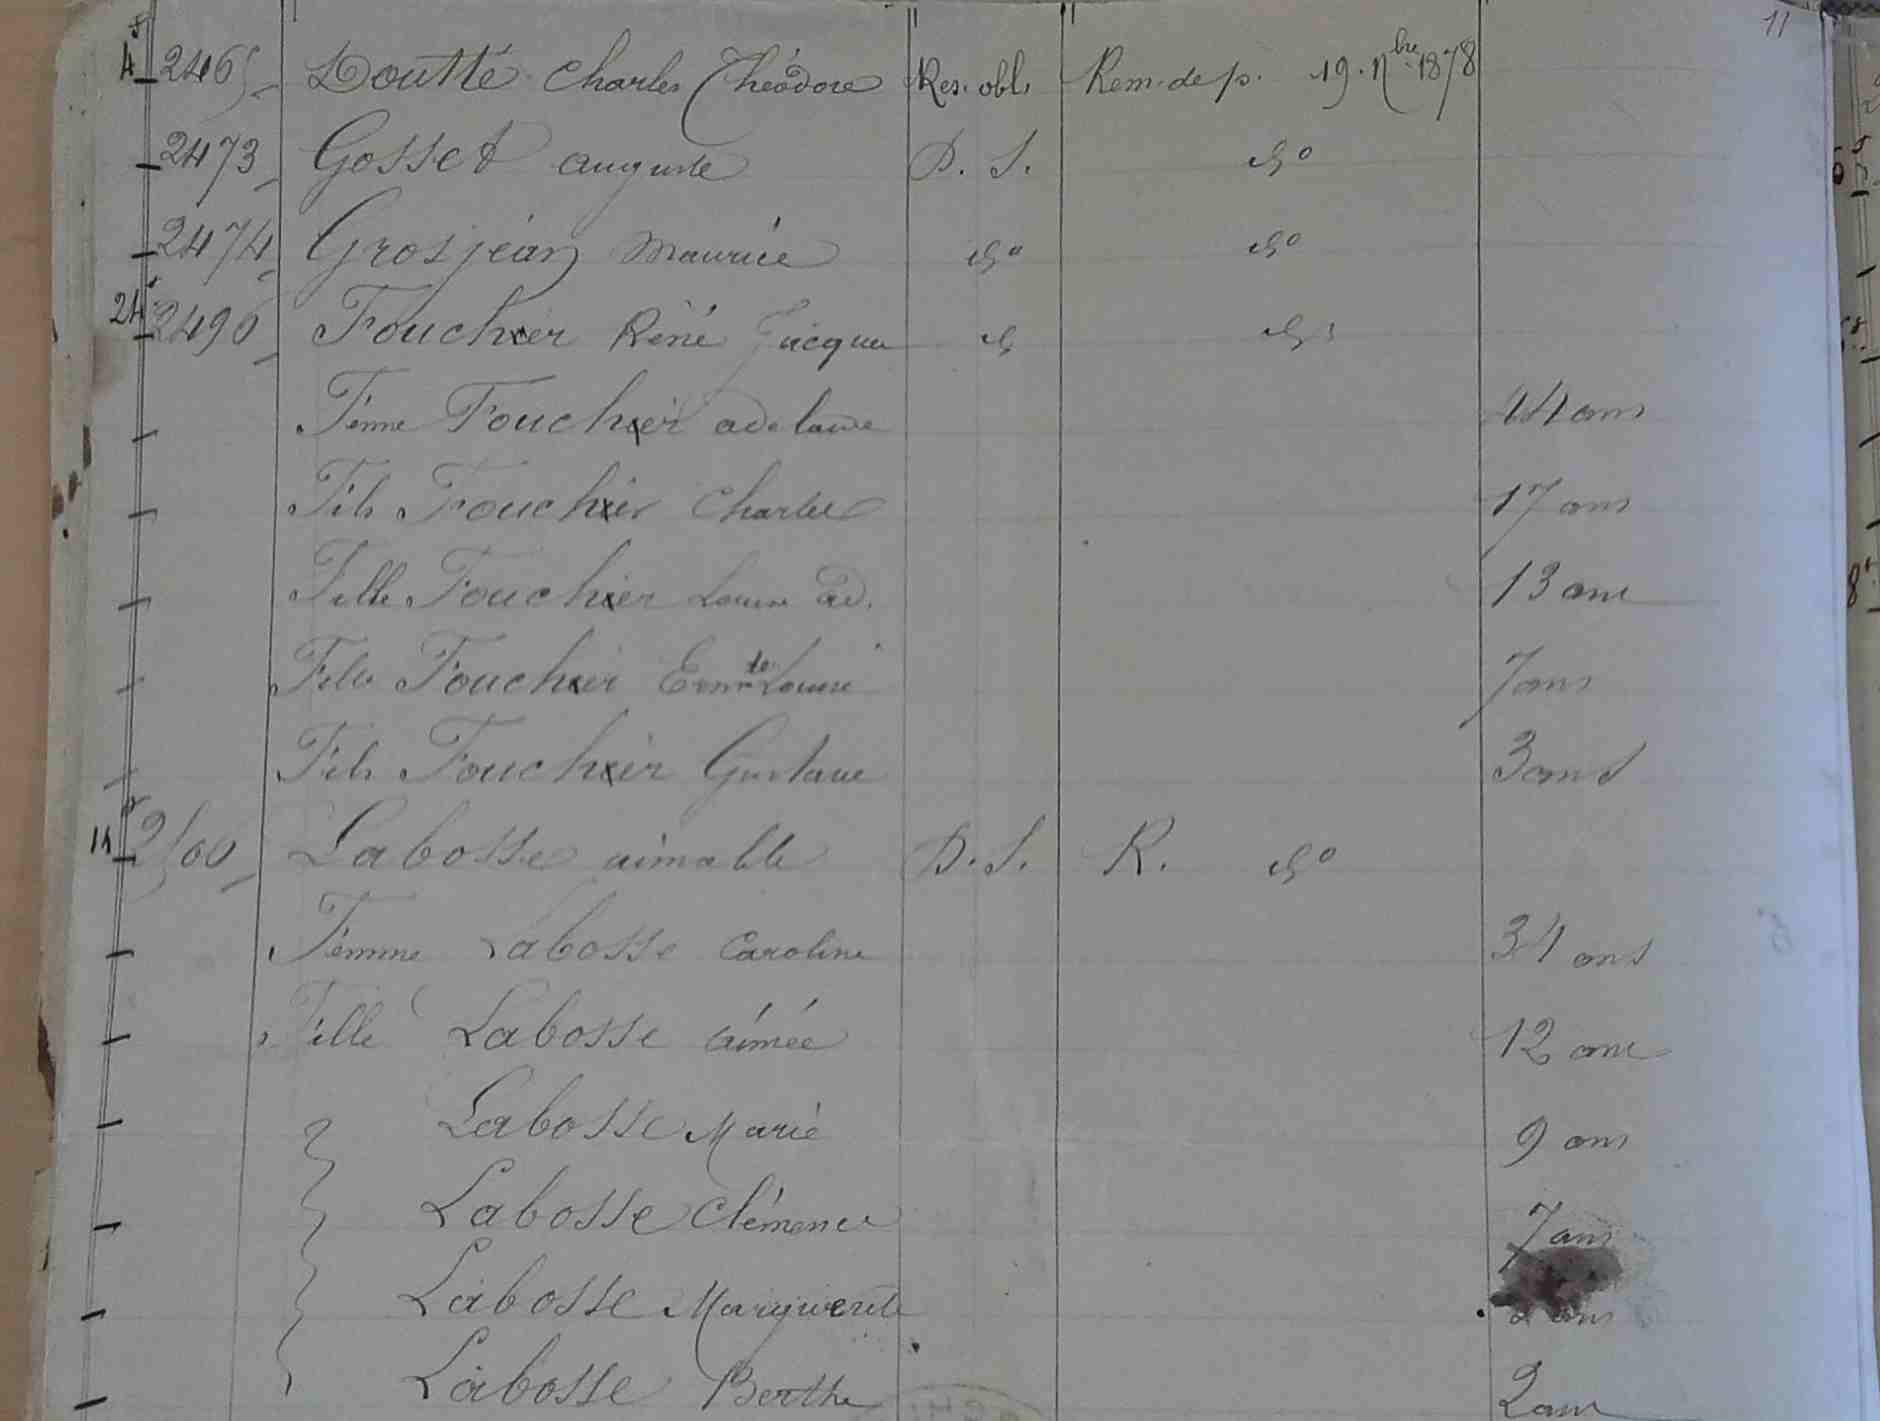 11
4 2465 Doutté Charles Théodore Res. obl. Rem. de p. 19 9bre 1878
2473 Gosset auguste D. S. do
2474 Grosjean Maurice do do
24 2490 Fouchier Réné Jacques d do
Fème Fouchier adelaide 44 ans
Fils Fouchier Charles 17 ans
Fille Fouchier Louise ad. 13 ans
Fille Fouchier Ernte Louise 7 ans
Fils Fouchier Gustave 3 ans
14 2500 Labosse aimable D. S. R. do
Femme Labosse Caroline 34 ans
Fille Labosse aimée 12 ans
Labosse Marie 9 ans
Labosse Clémence 7 ans
Labosse Marguerite ans
Labosse Berthe 2 ans